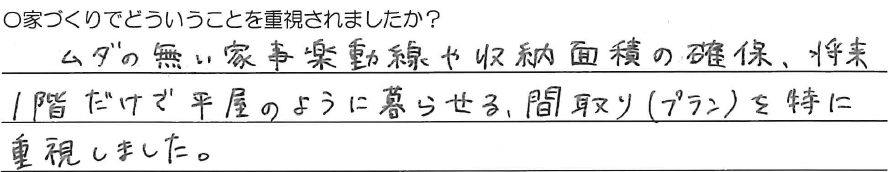 ○家づくりでどういうことを重視されましたか？
ムダの無い家事楽動線や収納面積の確保、将来
1階だけで平屋のように暮らせる、間取り(プラン)を特に
重視しました。